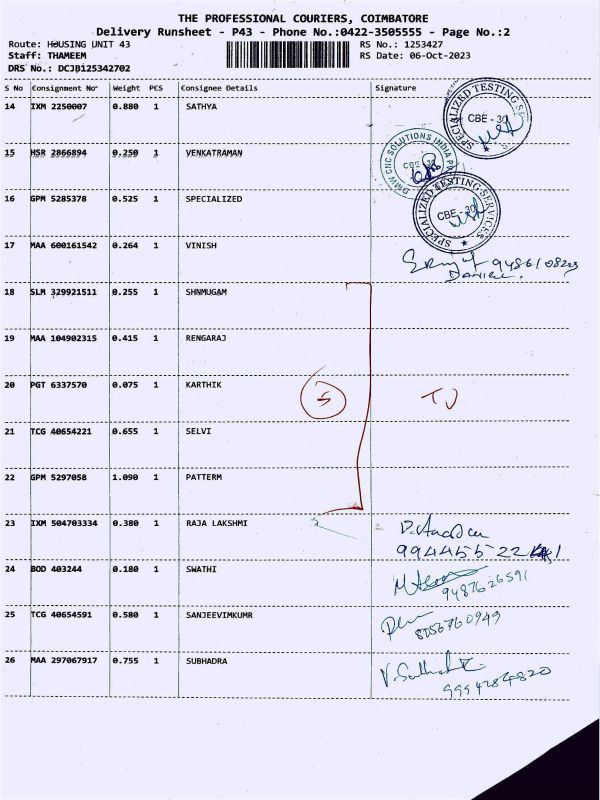 THE PROFESSIONAL COURIERS, COIMBATORE
Delivery Runsheet - P43 - Phone No.:0422-3505555 - Page No.:2
Route: HOUSING UNIT 43 RS No.: 1253427
Staff: THAMEEM RS Date: 06-Oct-2023
DRS No.: DCJB125342702
S No Consignment No Weight PCS Consignee Details Signature
14 IXM 2250007 0.880 1 SATHYA
SPECIALIZED TESTING SERVICES
CBE - 30
15 HSR 2866894 0.250 1 VENKATRAMAN
DMW CNC SOLUTIONS INDIA
CBE
16 GPM 5285378 0.525 1 SPECIALIZED
SPECIALIZED TESTING SERVICES
CBE - 30
17 MAA 600161542 0.264 1 VINISH
18 SLM 329921511 0.255 1 SHNMUGAM
19 MAA 104902315 0.415 1 RENGARAJ
20 PGT 6337570 0.075 1 KARTHIK
5
21 TCG 40654221 0.655 1 SELVI
22 GPM 5297058 1.090 1 PATTERM
23 IXM 504703334 0.380 1 RAJA LAKSHMI
24 BOD 403244 0.180 1 SWATHI
9487626591
25 TCG 40654591 0.580 1 SANJEEVIMKUMR
8056760949
26 MAA 297067917 0.755 1 SUBHADRA
9994284820